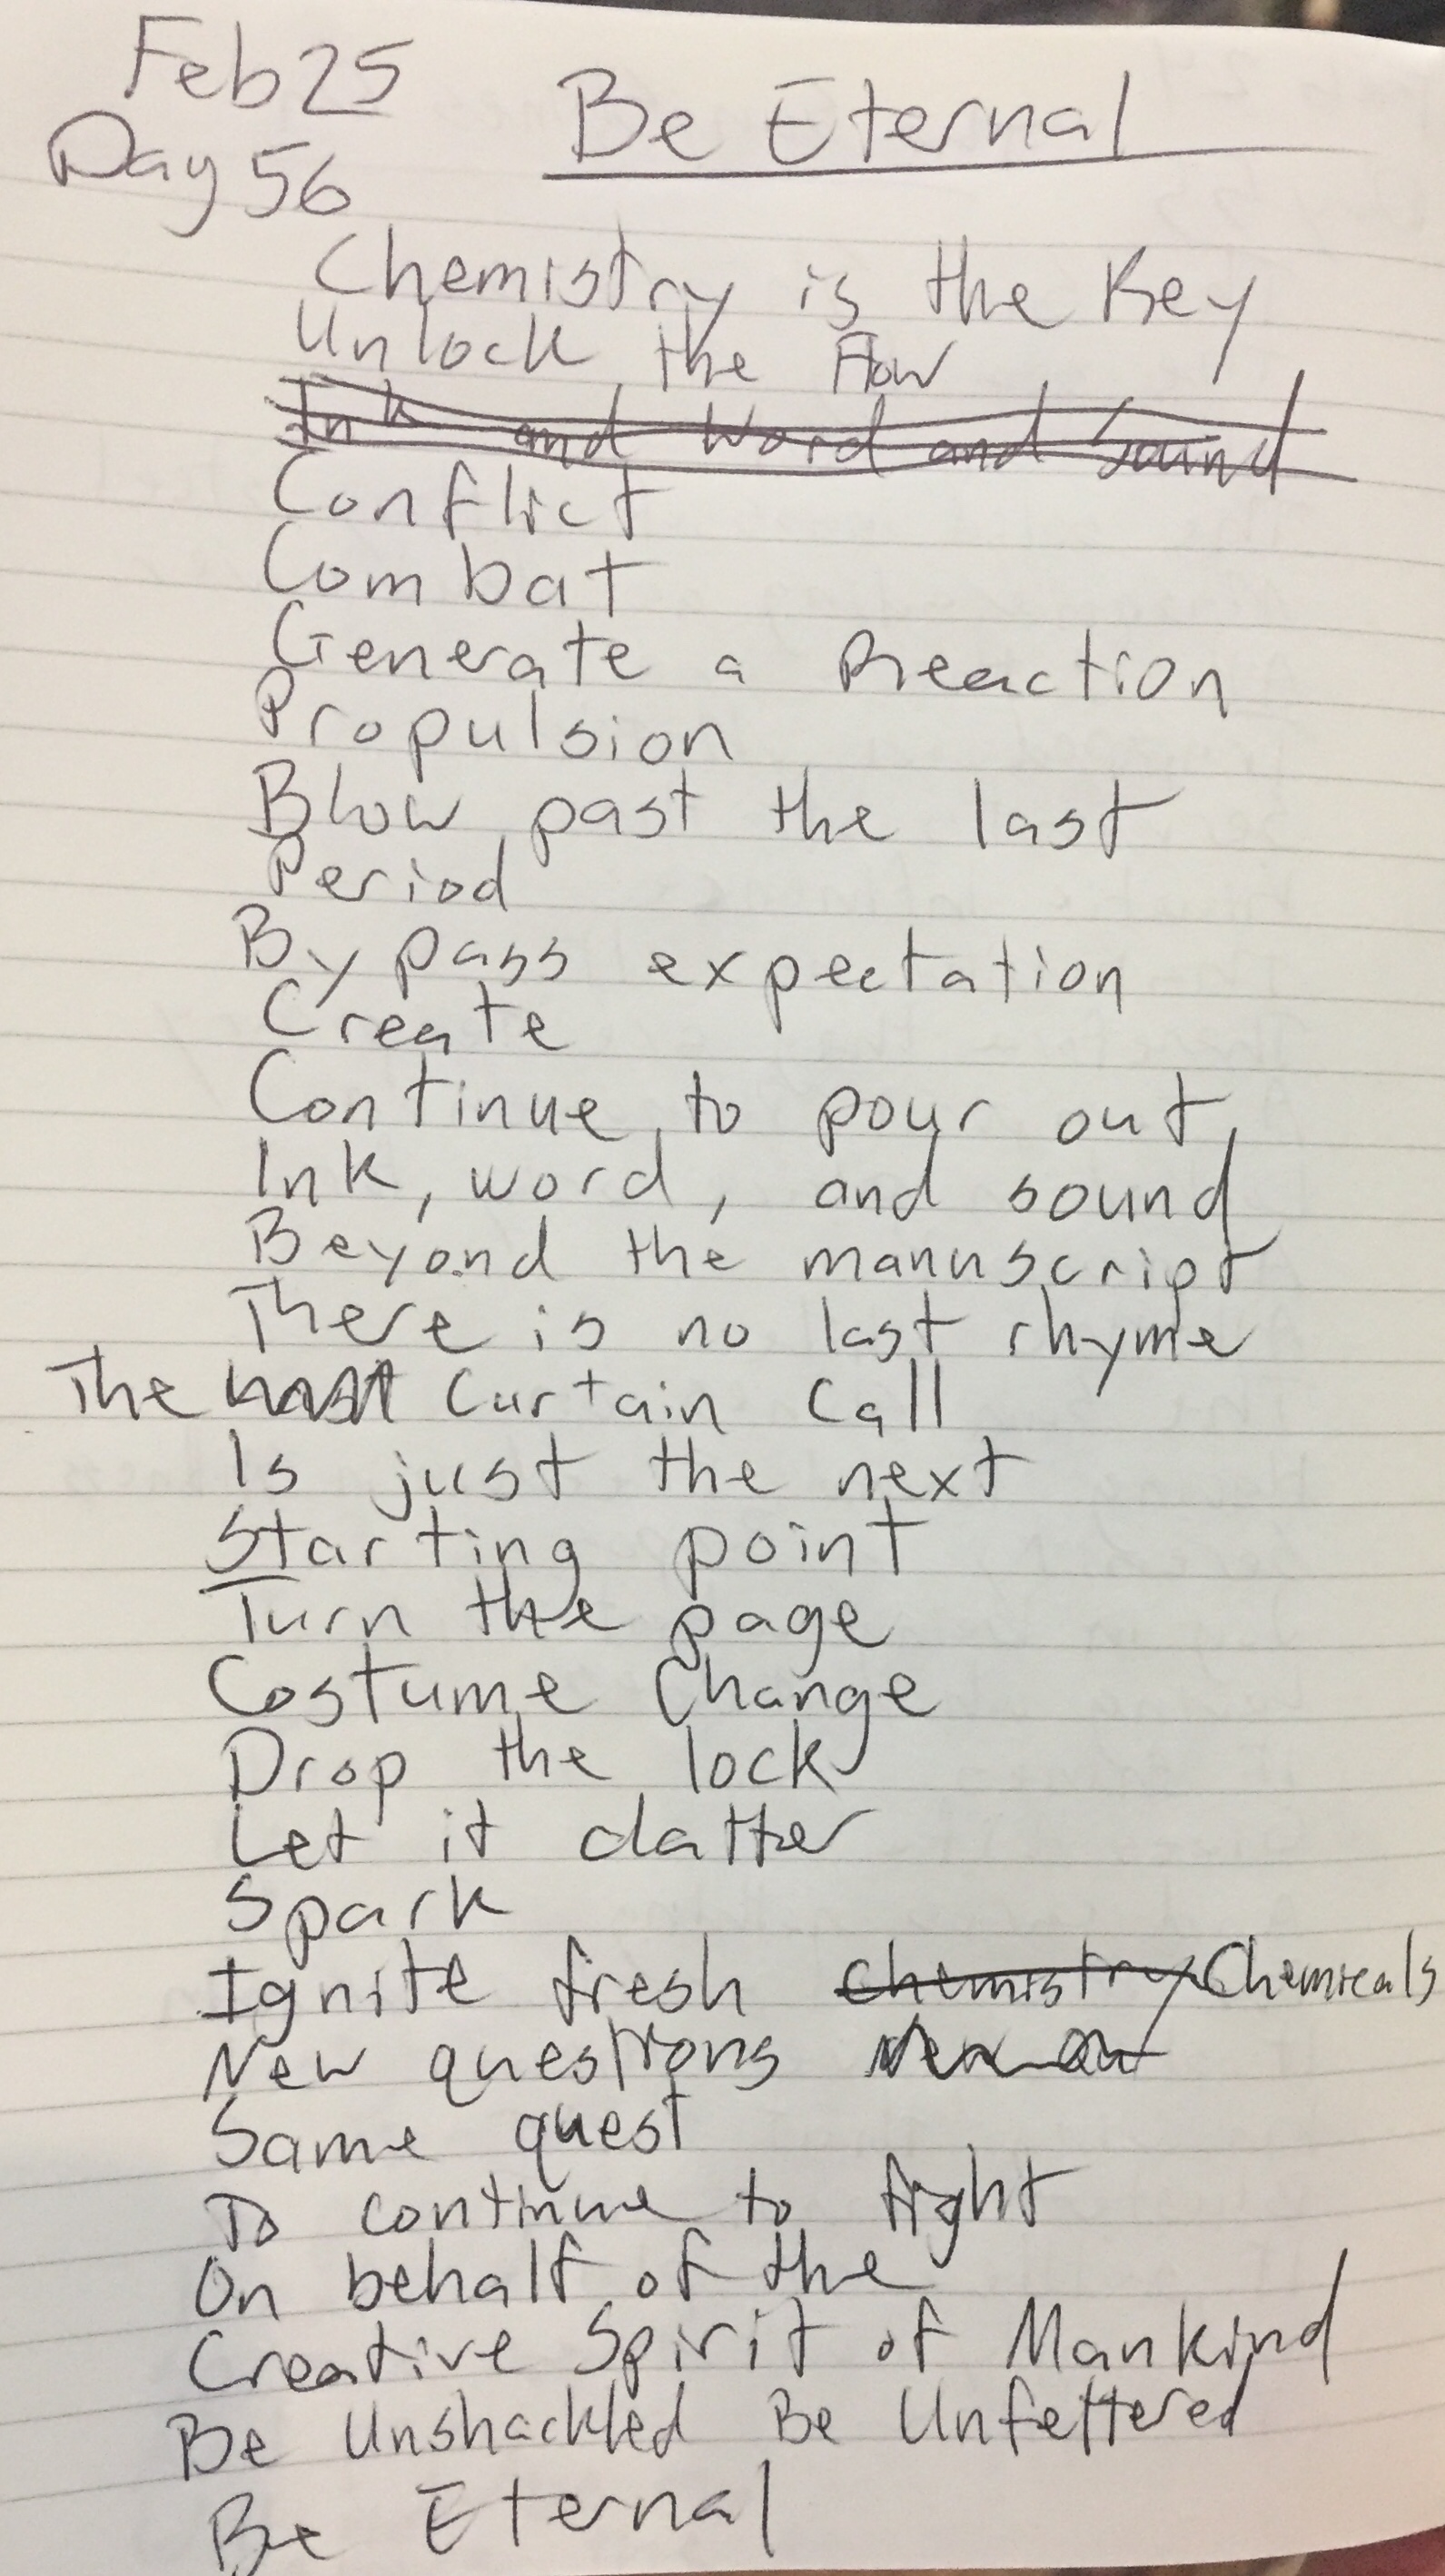 Feb 25
Be Eternal
Day 56
Chemistry is the Key
Unlock the Flow
Ink and Word and Sound
Conflict
Combat
Generate a Reaction
Propulsion
Blow past the last
Period
Bypass expectation
Create
Continue to pour out
Ink, word, and sound
Beyond the manuscript
There is no last rhyme
The Curtain Call
Is just the next
Starting point
Turn the page
Costume Change
Drop the lock
Let it clatter
Spark
Ignite fresh chemistry Chemicals
New questions
Same quest
To continue to fight
On behalf of the
Creative Spirit of Mankind
Be Unshackled Be Unfettered
Be Eternal